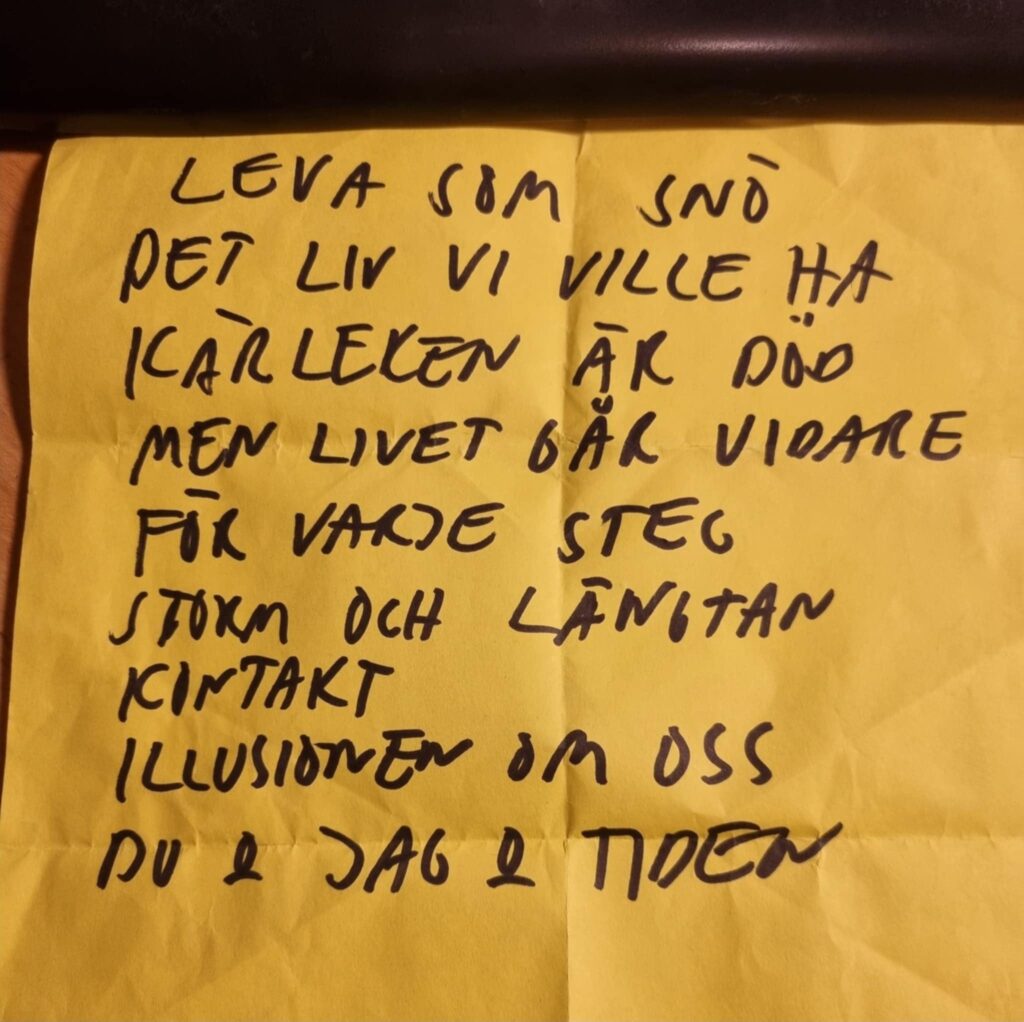 LEVA SOM SNÖ
DET LIV VI VILLE HA
KÄRLEKEN ÄR DÖD
MEN LIVET GÅR VIDARE
FÖR VARJE STEG
STORM OCH LÄNGTAN
KONTAKT
ILLUSIONEN OM OSS
DU & JAG & TIDEN